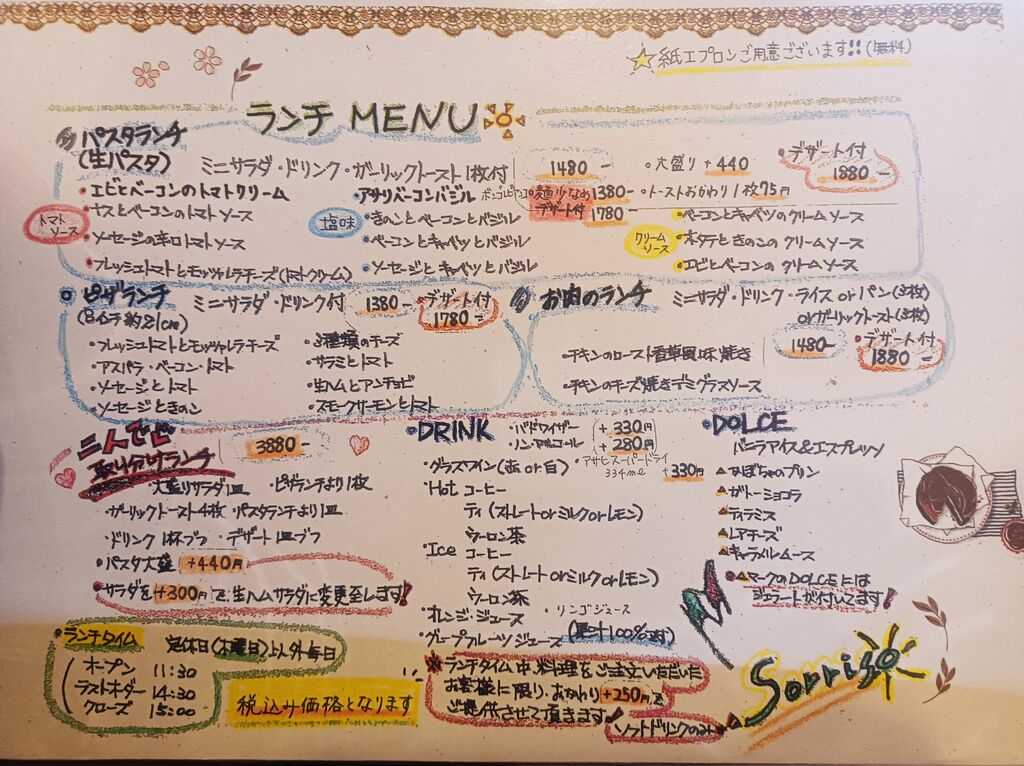 ☆紙エプロンご用意ございます!!(無料)
ランチ MENU
パスタランチ
(生パスタ)
ミニサラダ・ドリンク・ガーリックトースト1枚付
1480-
・大盛り+440
・デザート付
1880-
・麺少なめ 1380-
デザート付 1780-
・トーストおかわり1枚75円
トマトソース
・エビとベーコンのトマトクリーム
・ナスとベーコンのトマトソース
・ソーセージの辛口トマトソース
・フレッシュトマトとモッツァレラチーズ(トマトクリーム)
塩味
・アサリバーコンバジル
・きのことベーコンとバジル
・ベーコンとキャベツとバジル
・ソーセージとキャベツとバジル
クリームソース
・ベーコンとキャベツのクリームソース
・ホタテときのこのクリームソース
・エビとベーコンのクリームソース
ピザランチ
(サイズ約21cm)
ミニサラダ・ドリンク付
1380-
・デザート付
1780-
・フレッシュトマトとモッツァレラチーズ
・アスパラ・ベーコン・トマト
・ソーセージとトマト
・ソーセージときのこ
・3種類のチーズ
・サラミとトマト
・生ハムとアンチョビ
・スモークサーモンとトマト
お肉のランチ
ミニサラダ・ドリンク・ライス orパン(2枚)
orガーリックトースト(2枚)
1480-
・デザート付
1880-
・チキンのロースト香草風味焼き
・チキンのチーズ焼きデミグラスソース
二人でご
取り分けランチ
3880-
・大盛りサラダ1皿
・ピザランチより1枚
・ガーリックトースト4枚
・パスタランチより1皿
・ドリンク1杯づつ
・デザート1皿づつ
・パスタ大盛 +440円
・サラダを+300円で生ハムサラダに変更致します!
・DRINK
・バドワイザー +330円
・ノンアルコール +280円
・グラスワイン(赤or白)
・アサヒスーパードライ
334ml
+330円
・Hot コーヒー
ティ(ストレートorミルクorレモン)
ウーロン茶
・Ice コーヒー
ティ(ストレートorミルクorレモン)
ウーロン茶
・オレンジ・ジュース
・リンゴジュース
・グレープフルーツジュース
(果汁100%です)
・DOLCE
バニラアイス&エスプレッソ
▲かぼちゃのプリン
▲ガトーショコラ
▲ティラミス
▲レアチーズ
▲キャラメルムース
・▲マークのDOLCEには
ジェラートが付いてます!
・ランチタイム
定休日(木曜日)以外毎日
オープン 11:30
ラストオーダー 14:30
クローズ 15:00
税込み価格となります
※ランチタイム中、料理をご注文いただいた
お客様に限り、おかわり+250円で
ご提供させて頂きます!
ソフトドリンクのみ
Sorriso